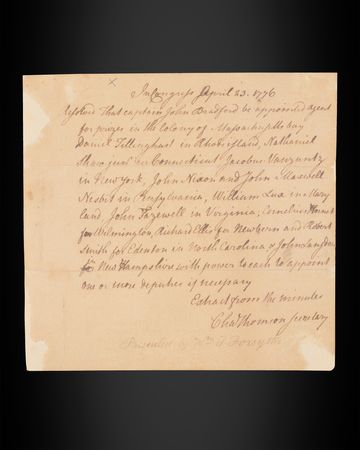 In Congress April 23. 1776
Resolved That captain John Bradford be appointed agent
for prizes in the Colony of Massachusetts bay
Daniel Tillinghast in Rhode island, Nathaniel
Shaw junr in Connecticut Jacobus Vanzuntz
in New york, John Nixon and John Maxwell
Nesbit in Pensylvania, William Lux in Mary
land John Tazewell in Virginia, Cornelius
for Wilmington, Richard Ellis for Newbern and Robert
Smith for Edenton in North Carolina & John Langdon
for New Hampshire with power to each to appoint
one or more deputies if necessary
Extract from the minutes
Cha Thomson Secretary
Presented by Wm J Forsyth